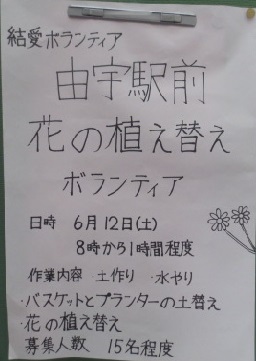 結愛ボランティア
由宇駅前
花の植え替え
ボランティア
日時 6月12日(土)
8時から1時間程度
作業内容 土作り・水やり
・バスケットとプランターの土替え
・花の植え替え
募集人数 15名程度